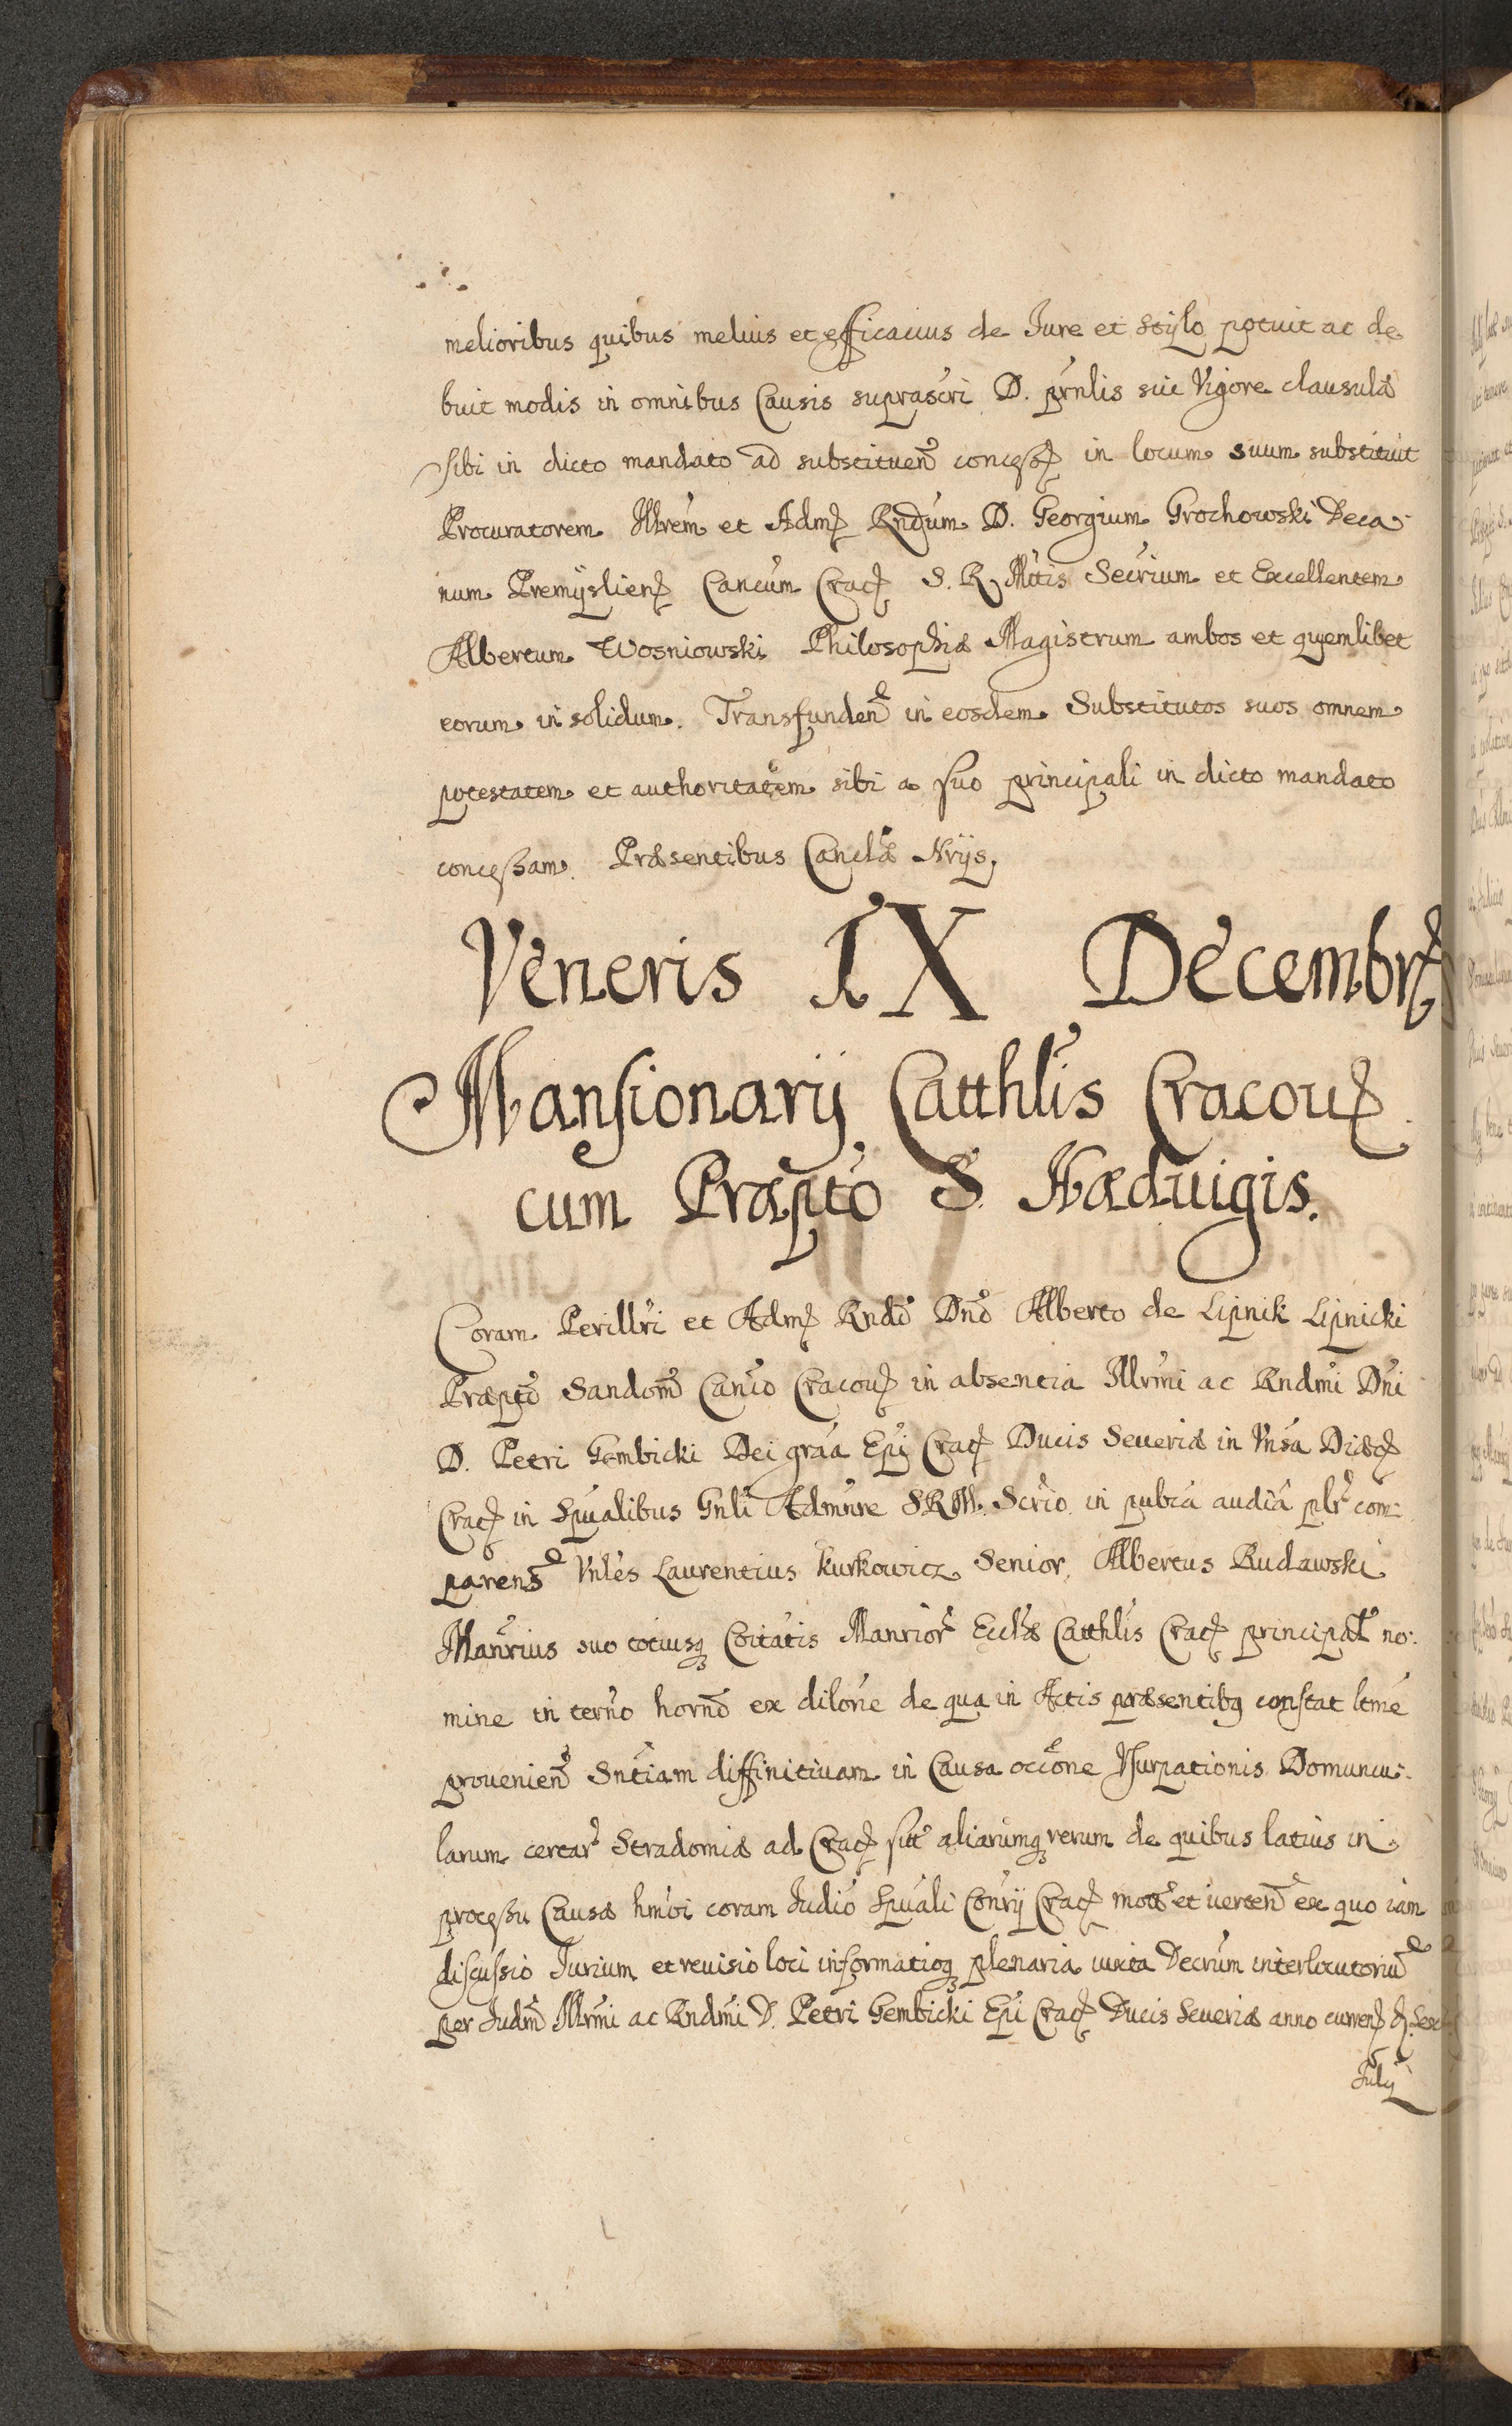 melioribus quibus melius et efficacius de Jure et stÿlo potuit ac de
buit modis in omnibus Causis suprascri D. prnlis sui Vigore clausulæ
sibi in dicto mandato ad substituen concess in locum suum substituit
Procuratorem Illrem et Adm Rndum D. Georgium Grochowski Deca-
num Premÿslien Cancum Crac S. R. Mtis Secrium et Excellentem
Albertum Wosniowski Philosophiæ Magistrum ambos et quemlibet
eorum in solidum. Transfunden in eosdem Substitutos suos omnem
potestatem et authoritatem sibi a suo principali in dicto mandato
concessam. Præsentibus Canclæ Nrijs,
Veneris IX Decembr
Mansionarij Catthlis Cracou
cum Præpto S. Hæduigis.
Coram Perillri et Adm Rndo Dno Alberto de Lipnik Lipnicki
Præpto Sandom Canco Cracou in absentia Illrmi ac Rndmi Dni
D. Petri Gembicki Dei graa Epi Crac Ducis Seueriæ in Vnsa Diæc
Crac in Spualibus Gnli Admnre S.R.M. Scrio in pubca audia plr com-
paren Vnles Laurentius Kurkowicz Senior, Albertus Rudawski
Manrius suo totiusq Coitatis Manrior Ecclæ Catthlis Crac principal no-
mine in terno horno ex dilone de qua in Actis præsentibq constat ltme
prouenien Sntiam diffinitiuam in Causa occone Vsurpationis Domuncu-
larum certar Stradomiæ ad Crac sitt aliarumq rerum de quibus latius in
processu Causæ hmoi coram Judio Spuali Conrij Crac mott et uerten ex quo iam
discussio Jurium et reuisio loci informatioq plenaria iuxta Decrum interlocutoriu
per Judm Illrmi ac Rndmi D. Petri Gembicki Epi Crac Ducis Seueriæ anno curren
Julij